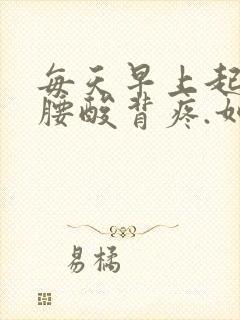 每天早上起
腰酸背疼.如
易橘